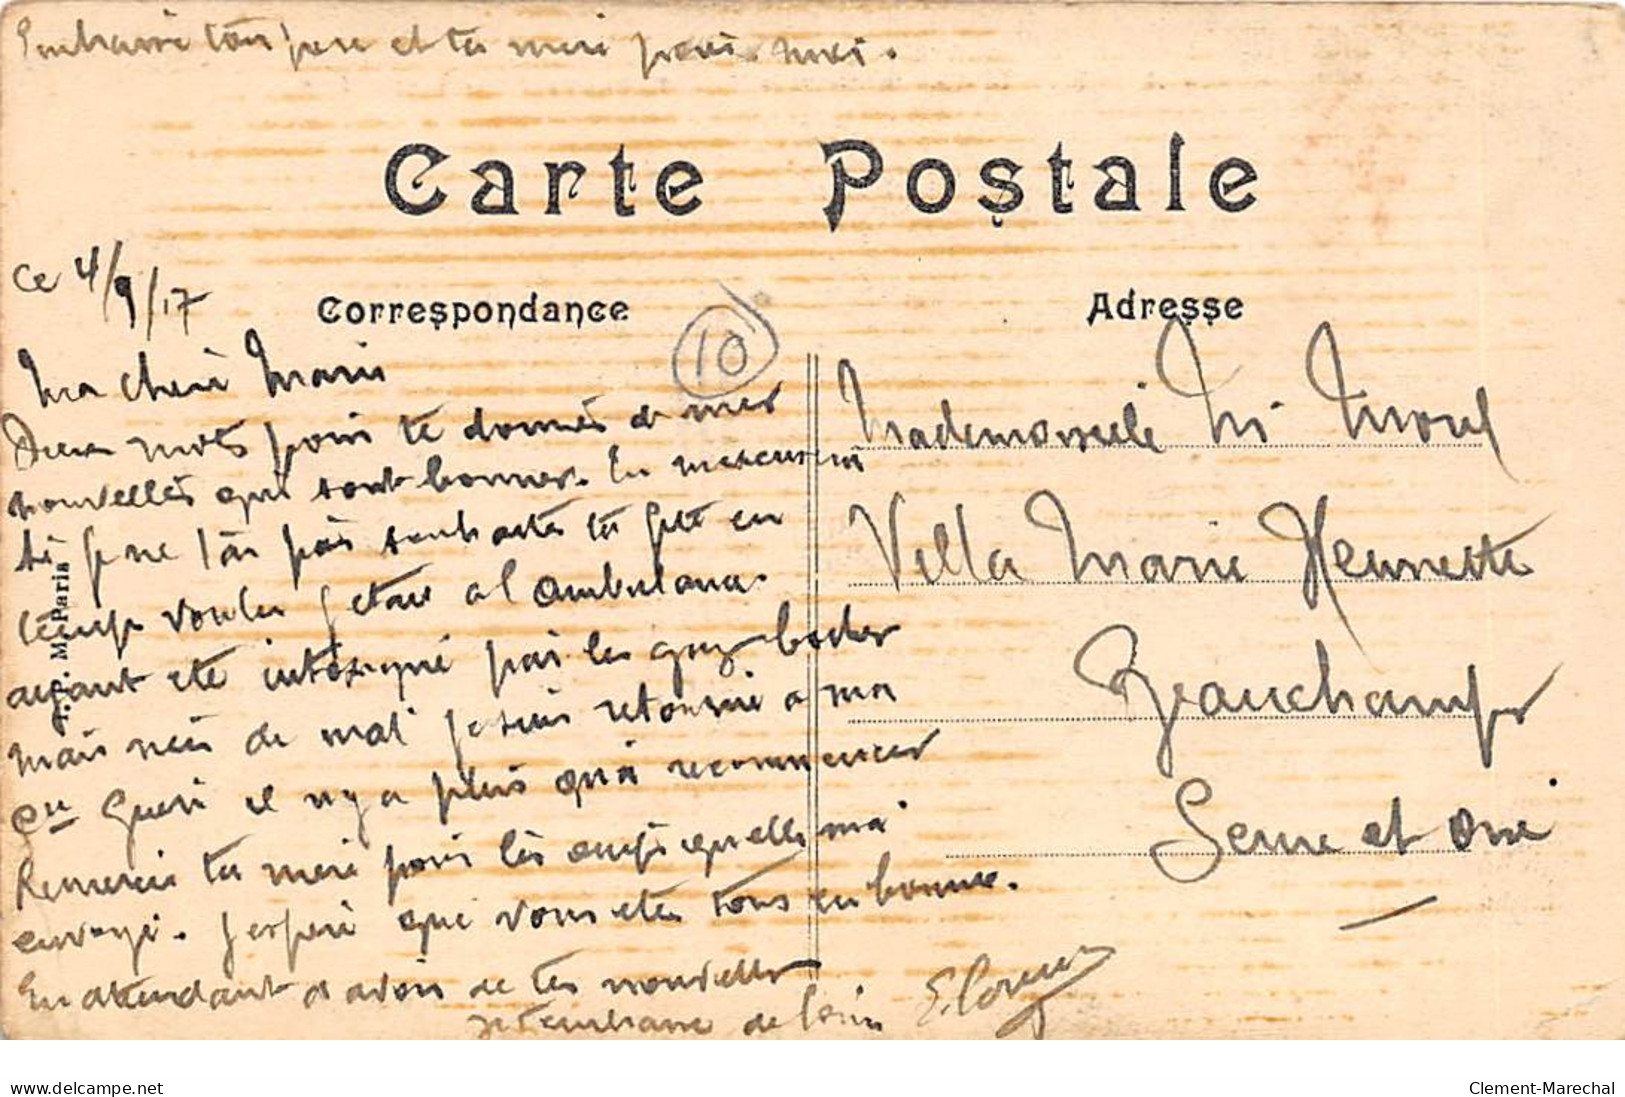 Embrasse ton père et ta mère pour moi.
Carte Postale
ce 4/9/17
Correspondance
10
Ma cheri Marie
Deux mots pour te donnés de mes
nouvelles qui sont bonnes. En
si je ne tai pas souhaité ta fete en
temps voulu jetais a l ambulance.
ayant ete intoxiqué par les gaz boches
mais rien de mal je suis retourné a ma
Cie Gueri il ny a plus qua recommencer
Remercie ta mere pour les œufs quelle ma
envoyé. Jespere que vous etes tous en bonne.
En attendant d avoir de tes nouvelles
je tembrasse de loin
M. Paris
Adresse
Mademoiselle Morel
Villa Marie Henriette
Beauchamps
Seine et Oise
www.delcampe.net
Clement-Marechal